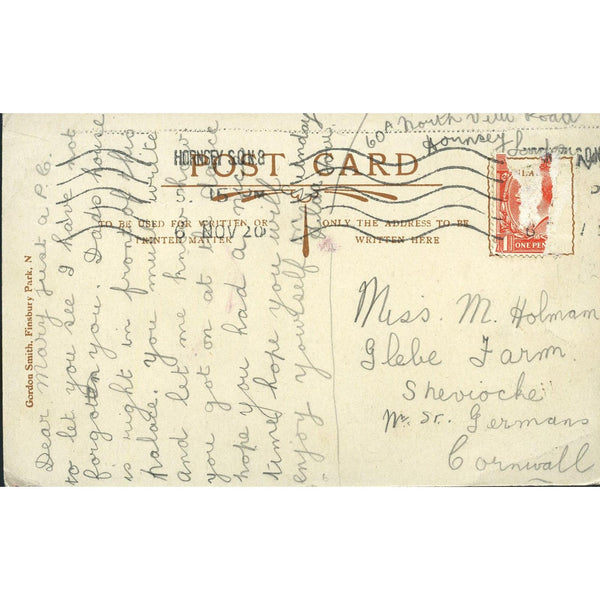 60A North View Road
Hornsey London
HORNSEY S.O.N.8
5. 15 PM
6 NOV 20
POST CARD
TO BE USED FOR WRITTEN OR
PRINTED MATTER
ONLY THE ADDRESS TO BE
WRITTEN HERE
ONE PEN
Gordon Smith, Finsbury Park, N
Dear Mary just a P.C.
to let you see I have not
forgotten you. Dads house
is right in front of this
palace. You must write
and let me know how
you got on at the
hope you had a good
time, hope you will
enjoy yourself Thursday
Miss. M. Holmam
Glebe Farm.
Sheviocke
Nr. St. Germans
Cornwall